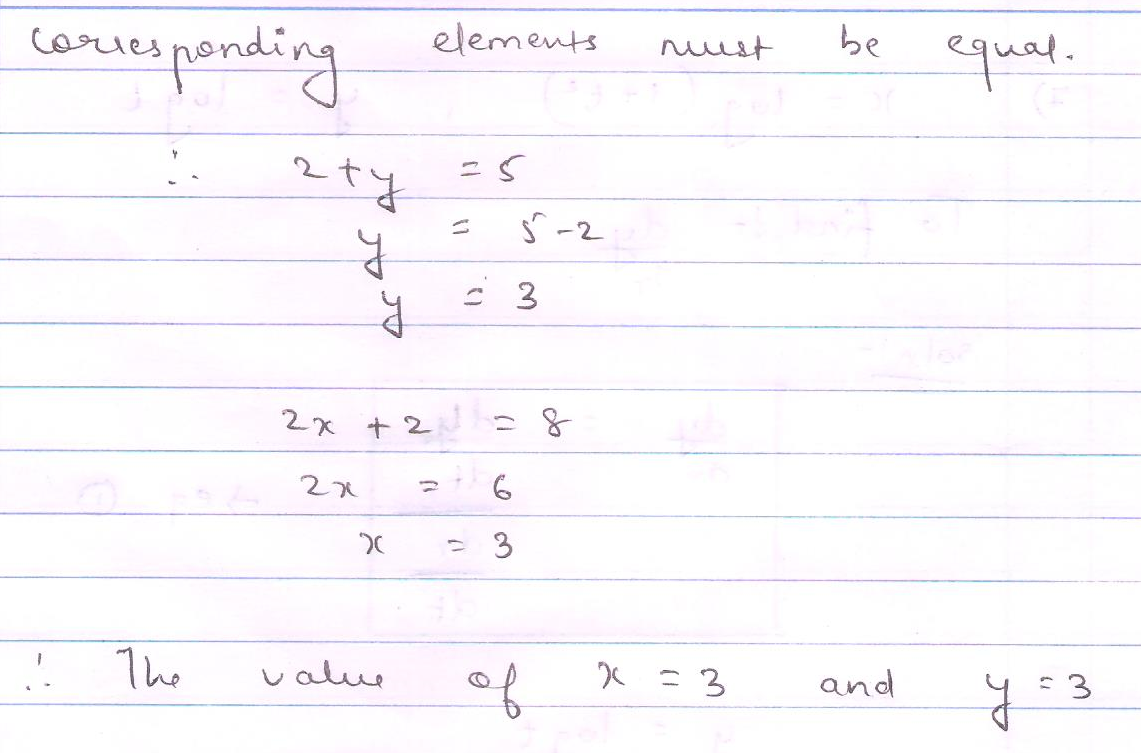 corresponding elements must be equal.
∴ 2+y = 5
y = 5-2
y = 3
2x + 2 = 8
2x = 6
x = 3
∴ The value of x = 3 and y = 3